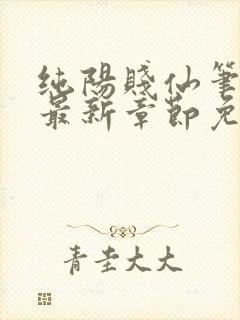 纯陽賤仙筆
最新章節免
青圭大大